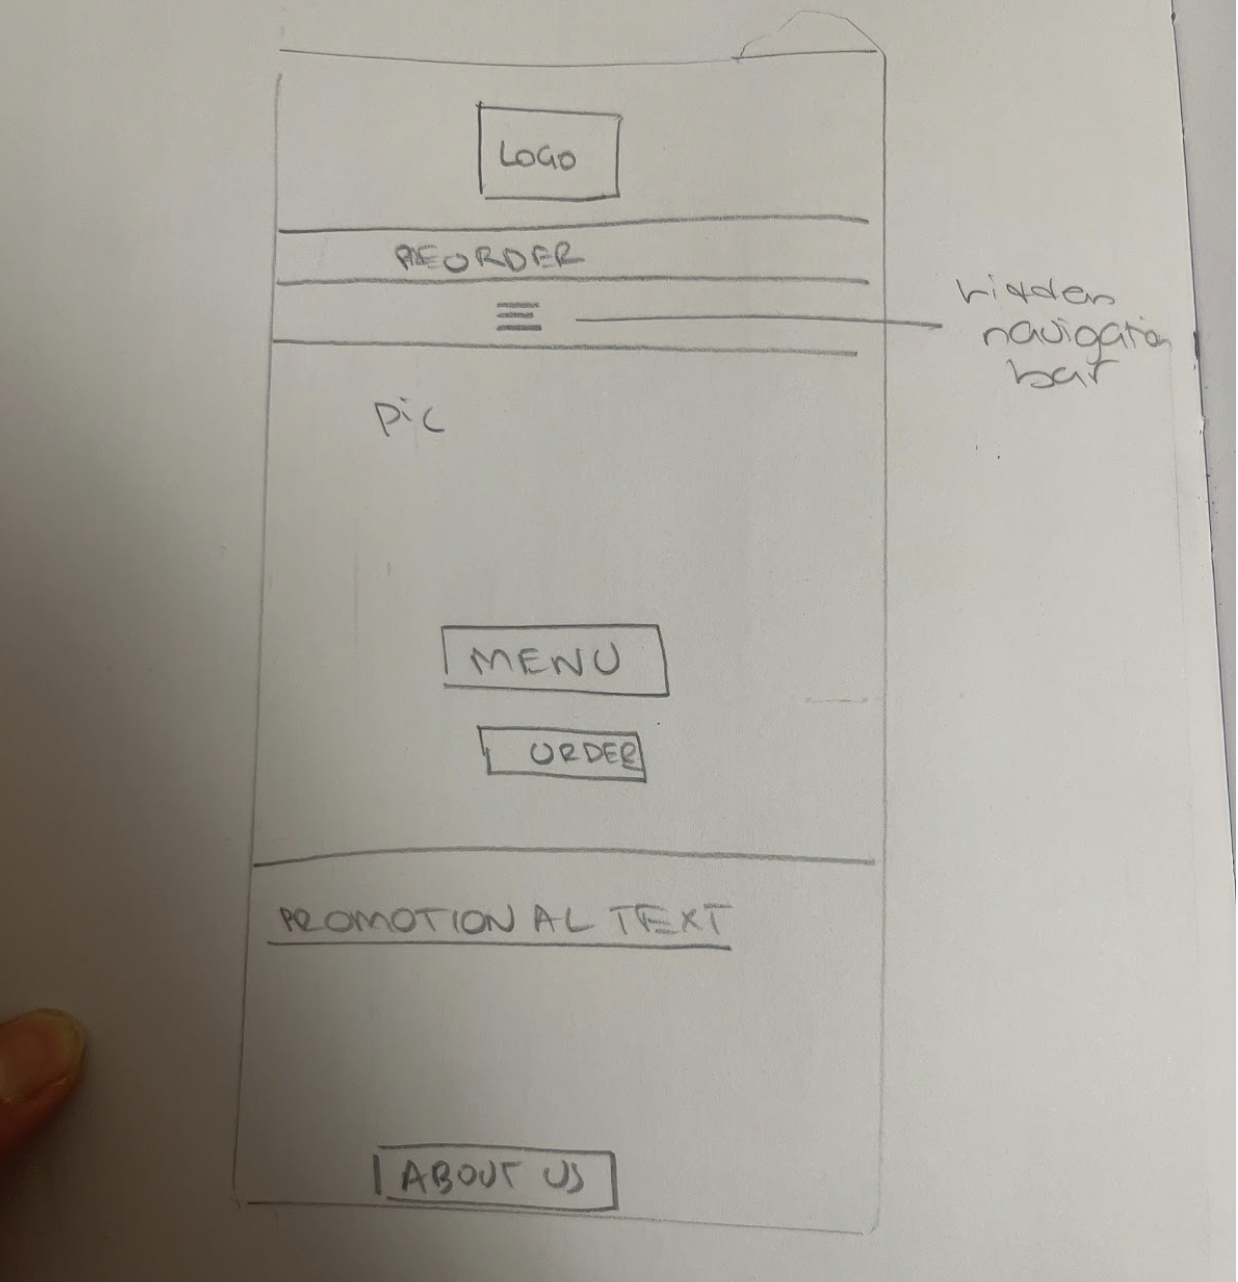 LOGO
REORDER
hidden
navigation
bar
pic
MENU
ORDER
PROMOTIONAL TEXT
ABOUT US